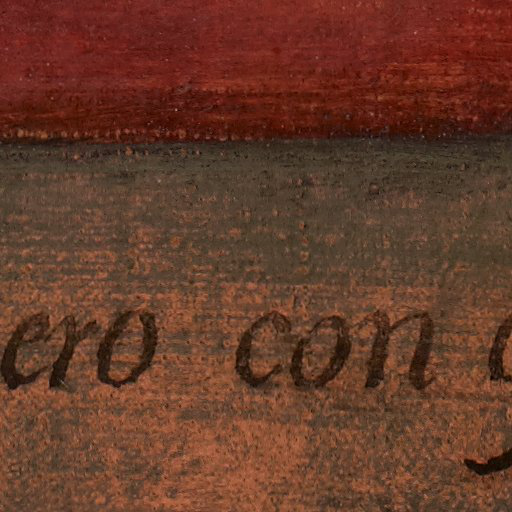 ero con